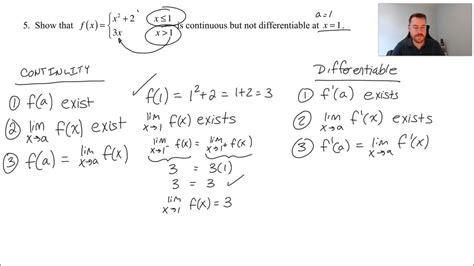 a=1
5. Show that f(x) = { x² + 2 , x ≤ 1
3x x > 1 is continuous but not differentiable at x = 1.
CONTINUITY
① f(a) exist
② lim x→a f(x) exist
③ f(a) = lim x→a f(x)
✓ f(1) = 1² + 2 = 1+2 = 3
lim x→1 f(x) exists
lim x→1⁻ f(x) = lim x→1⁺ f(x)
3 = 3(1)
3 = 3 ✓
lim x→1 f(x) = 3
Differentiable
① f'(a) exists
② lim x→a f'(x) exists
③ f'(a) = lim x→a f'(x)